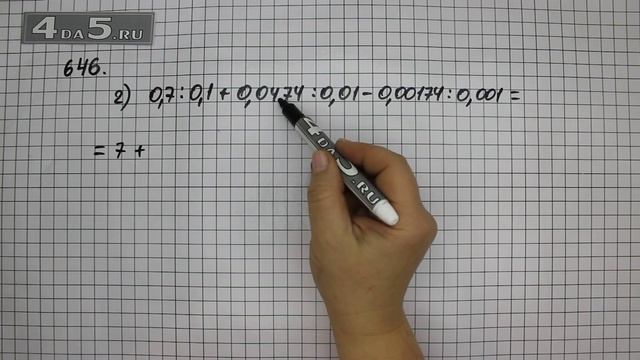 4 ДА 5.RU
646.
2) 0,7 : 0,1 + 0,0474 : 0,01 - 0,00174 : 0,001 =
= 7 +
4 ДА 5.RU